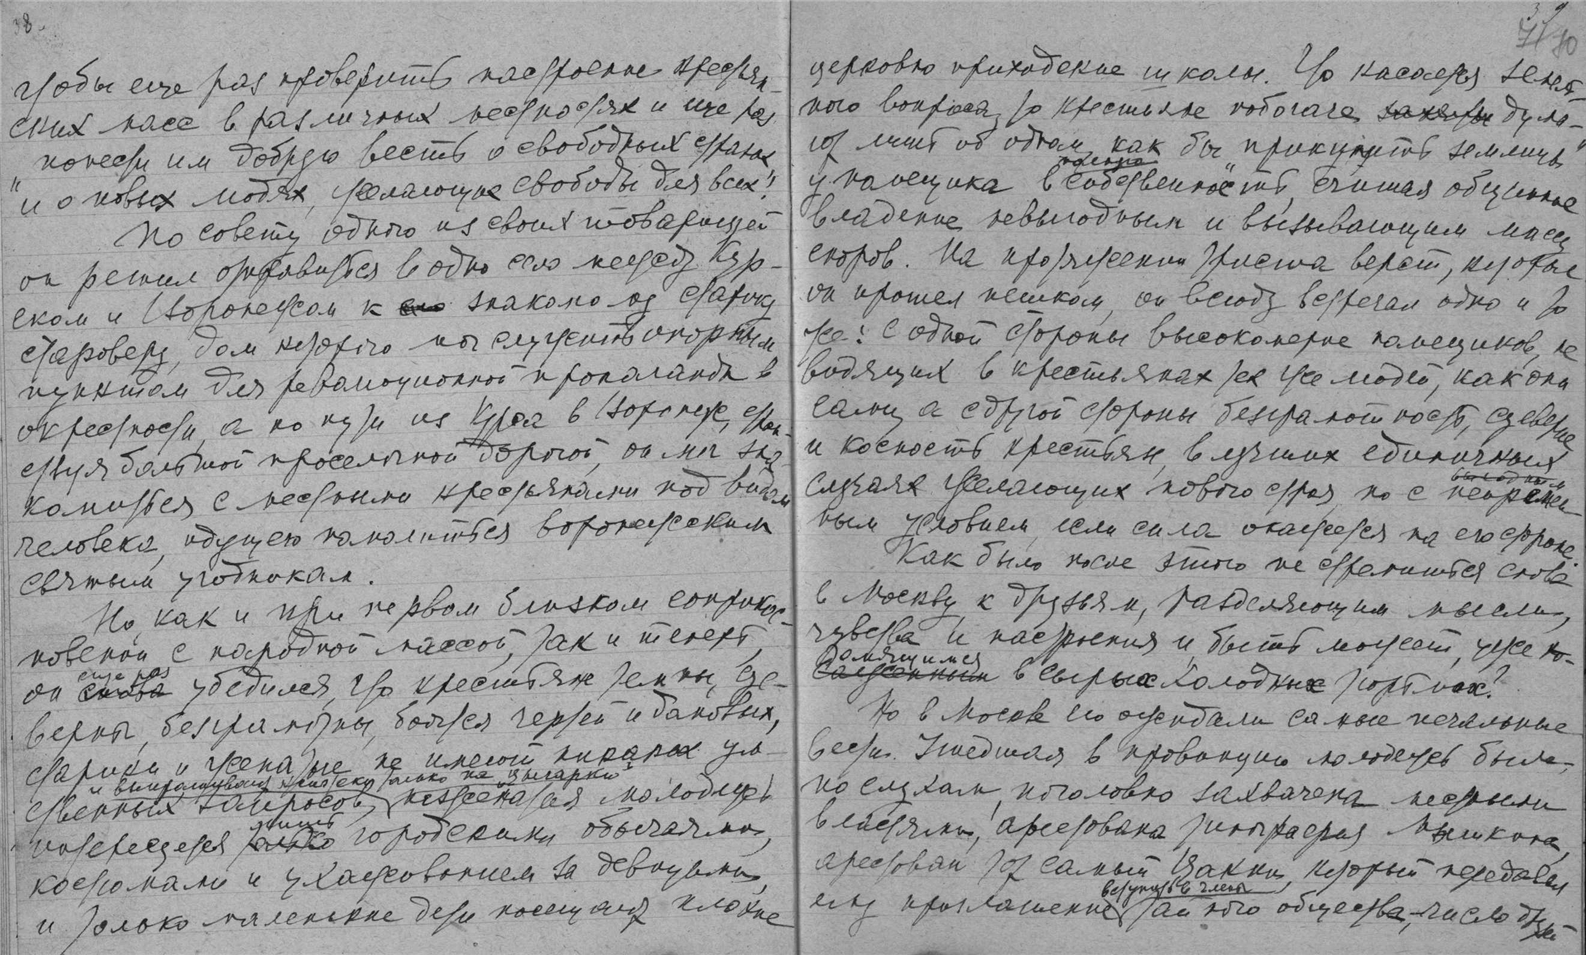 38.
чтобы еще раз проверить настроение крестьян-
ских масс в различных местностях и еще раз
понести им добрую весть о свободных странах
"и о новых людях, желающих свободы для всех!"
По совету одного из своих товарищей
он решил отправиться в одно село между Кур-
ском и Воронежом к знакомому старику
староверу, дом которого мог служить опорным
пунктом для революционной пропаганды в
окрестности, а по пути из Курска в Воронеж, стран-
ствуя большой проселочной дорогой, он мог зна-
комиться с местными крестьянами под видом
человека, идущего помолиться воронежским
святым угодникам.
Но, как и при первом близком соприкос-
новении с народной массой, так и теперь,
еще раз
он снова убедился, что крестьяне темны, суе-
верны, безграмотны, боятся чертей и домовых,
старики и женатые не имеют никаких ум-
и выпрашивая копейку только на "цыгарки"
ственных запросов, неженатая молодежь
лишь
интересуется только городскими обычаями,
костюмами и ухаживанием за девицами,
и только маленькие дети посещают плохие
39
40
церковно приходские школы. Что касается земель-
ного вопроса, то крестьяне побогаче дума-
ют лишь об одном, как бы "прикупить землицы"
у помещика в собственность, считая общинное
владение невыгодным и вызывающим массу
споров. На протяжении триста верст, которые
он прошел пешком, он всюду встречал одно и то
же: с одной стороны высокомерие помещиков, не
видящих в крестьянах тех же людей, как они
сами, а с другой стороны безграмотность, суеверие
и косность крестьян, в лучших единичных
случаях желающих нового строя, но с непремен-
ным условием, если сила окажется на его стороне.
Как было после этого не стремиться снова
в Москву, к друзьям, разделяющим мысли,
чувства и настроения и быть может, уже
томящимся
в сырых холодных тюрьмах?
Но в Москве его ожидали самые печальные
вести. Ушедшая в провинцию молодежь была,
по слухам, поголовно захвачена местными
властями, арестована типография Мышкина,
арестован тот самый Цакни, который передавал
вступить в члены
ему приглашение тайного общества, число друзей